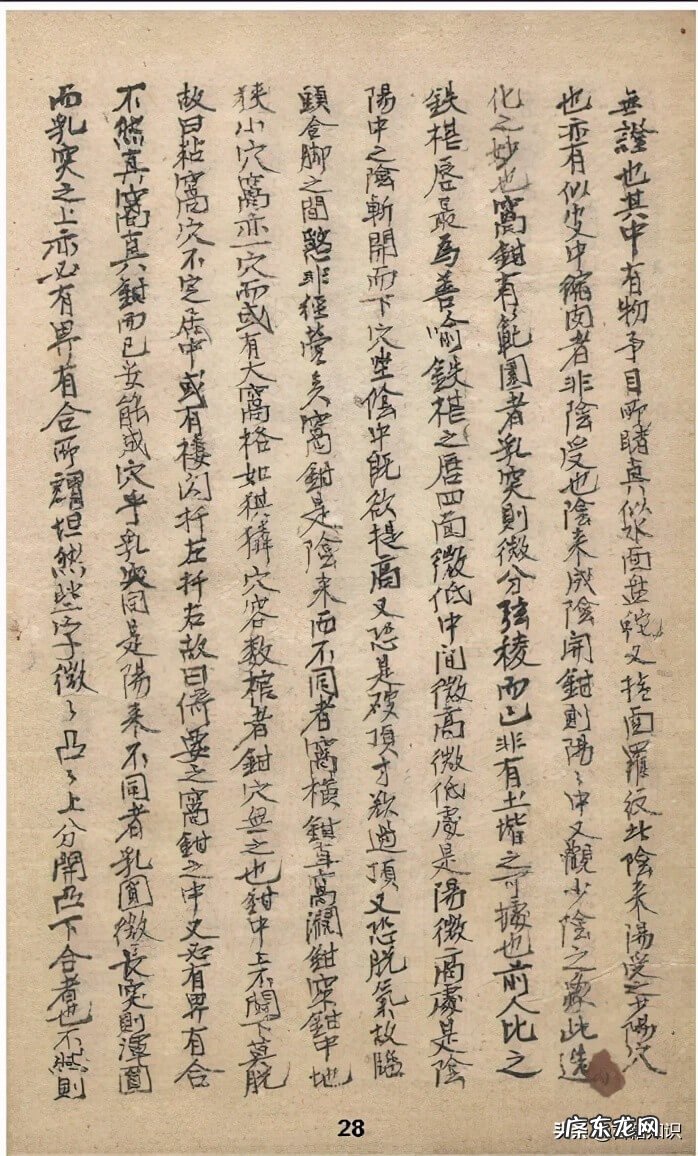 無證也其中有物予目所睹真似水面盤蛇又撞面羅紋此陰來陽受之少陽穴
也亦有似皮中縮肉者非陰受也陰來成陰開鉗則陽〻中又觀少陰之象此造
化之妙也窩鉗有範圍者乳突則微分弦稜而已非有土堦之可據也前人比之
鉄棋唇最為善喻鉄棋之唇四面微低中间微高微低處是陽微高處是陰
陽中之陰斬開而下穴坐陰中既欲提高又恐是破頂才欲過頂又恐脱氣故臨
頭合脚之間慾非経營矣窩鉗是陰来而不同者窩橫鉗直窩濶鉗窄鉗中地
狭小穴窩亦一穴而或有大窩格如棋穴容数棺者鉗穴無之也鉗中上不鬪下莫脱
故曰粘窩穴不定居中或有閃扦左扦右故曰倚要之窩鉗之中又必有界有合
不然真窩真鉗而已安能成穴乎乳突同是陽来不同者乳圓微長突則渾圓
而乳突之上亦必有界有合所謂坦然些字微〻凸〻上分開凸下合者也不然則
28
头条
知识
广东龙网